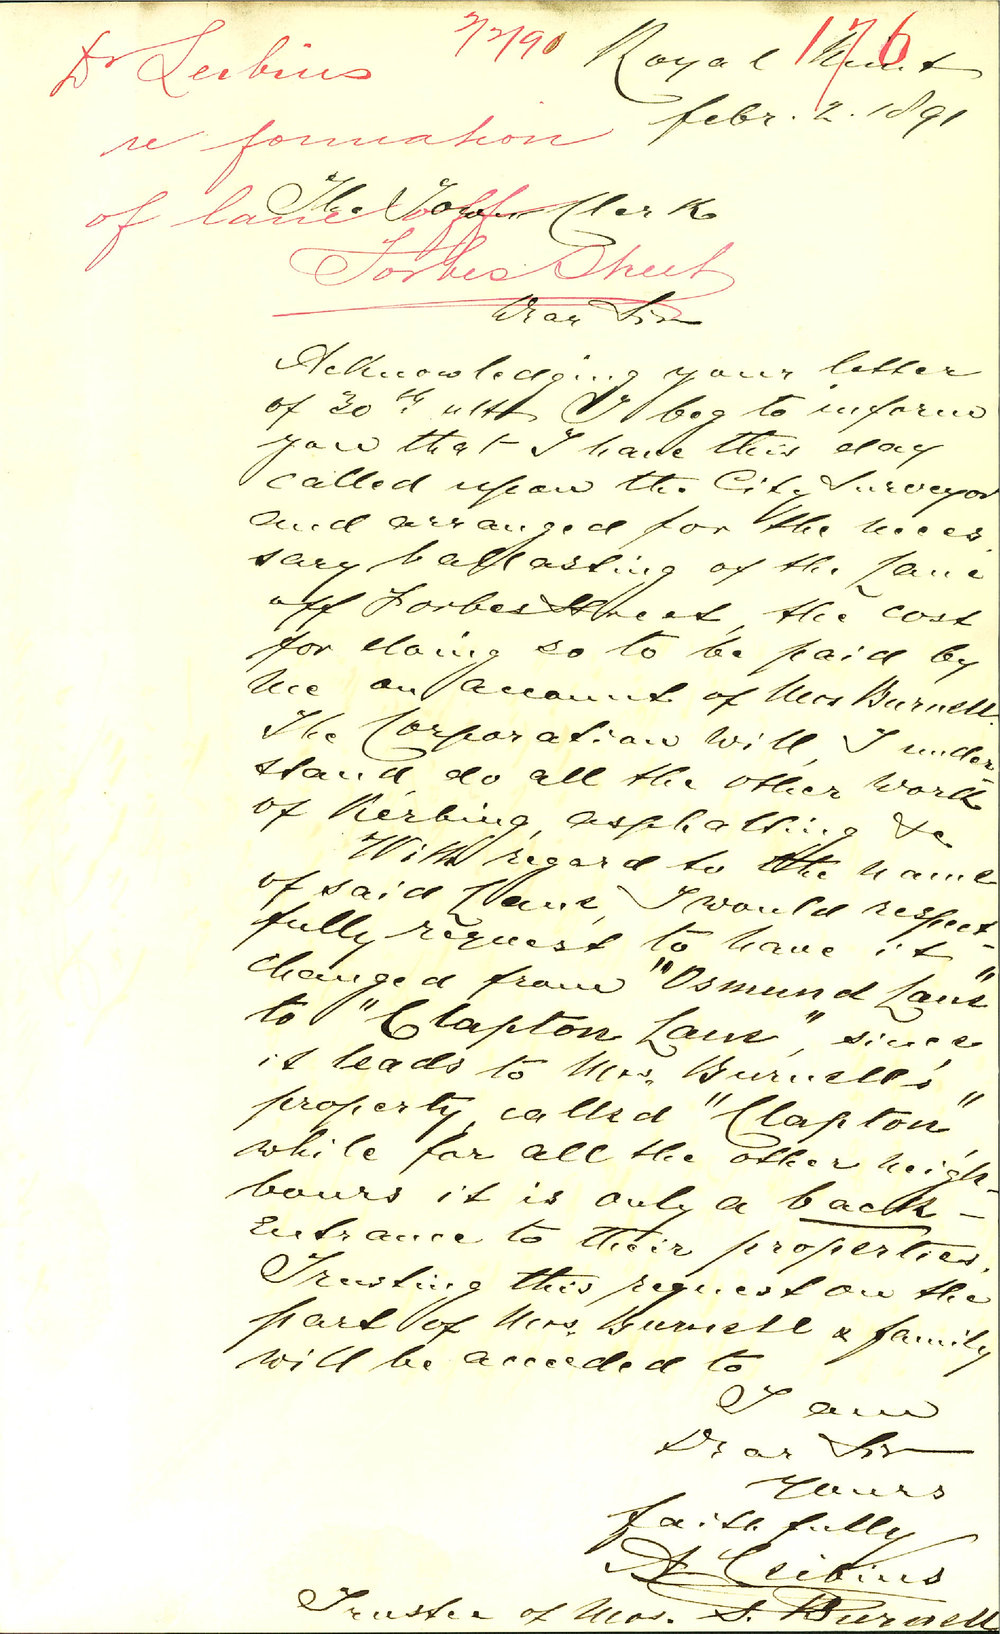 Dr Leibius
re formation
of lane off
Forbes Street
176
Royal Mint
febr. 2. 1891
The Town Clerk
Dear Sir
Acknowledging your letter
of 30th ult I beg to inform
you that I have this day
called upon the City Surveyor
and arranged for the neces
sary ballasting of the Lane
off Forbes Street, the cost
for doing so to be paid by
me on account of Mrs Burnell.
The Corporation will, I under-
stand, do all the other work
of Kerbing, asphalting &c
With regard to the name
of said Lane, I would respect-
fully request to have it
changed from "Osmund Lane"
to "Clapton Lane", since
it leads to Mrs. Burnell's
property, called "Clapton"
while for all the other neigh-
bours it is only a back-
entrance to their properties.
Trusting this request on the
part of Mrs. Burnell & family
will be acceeded to
I am
Dear Sir
Yours
faithfully
A Leibius
Trustee of Mrs. S. Burnell